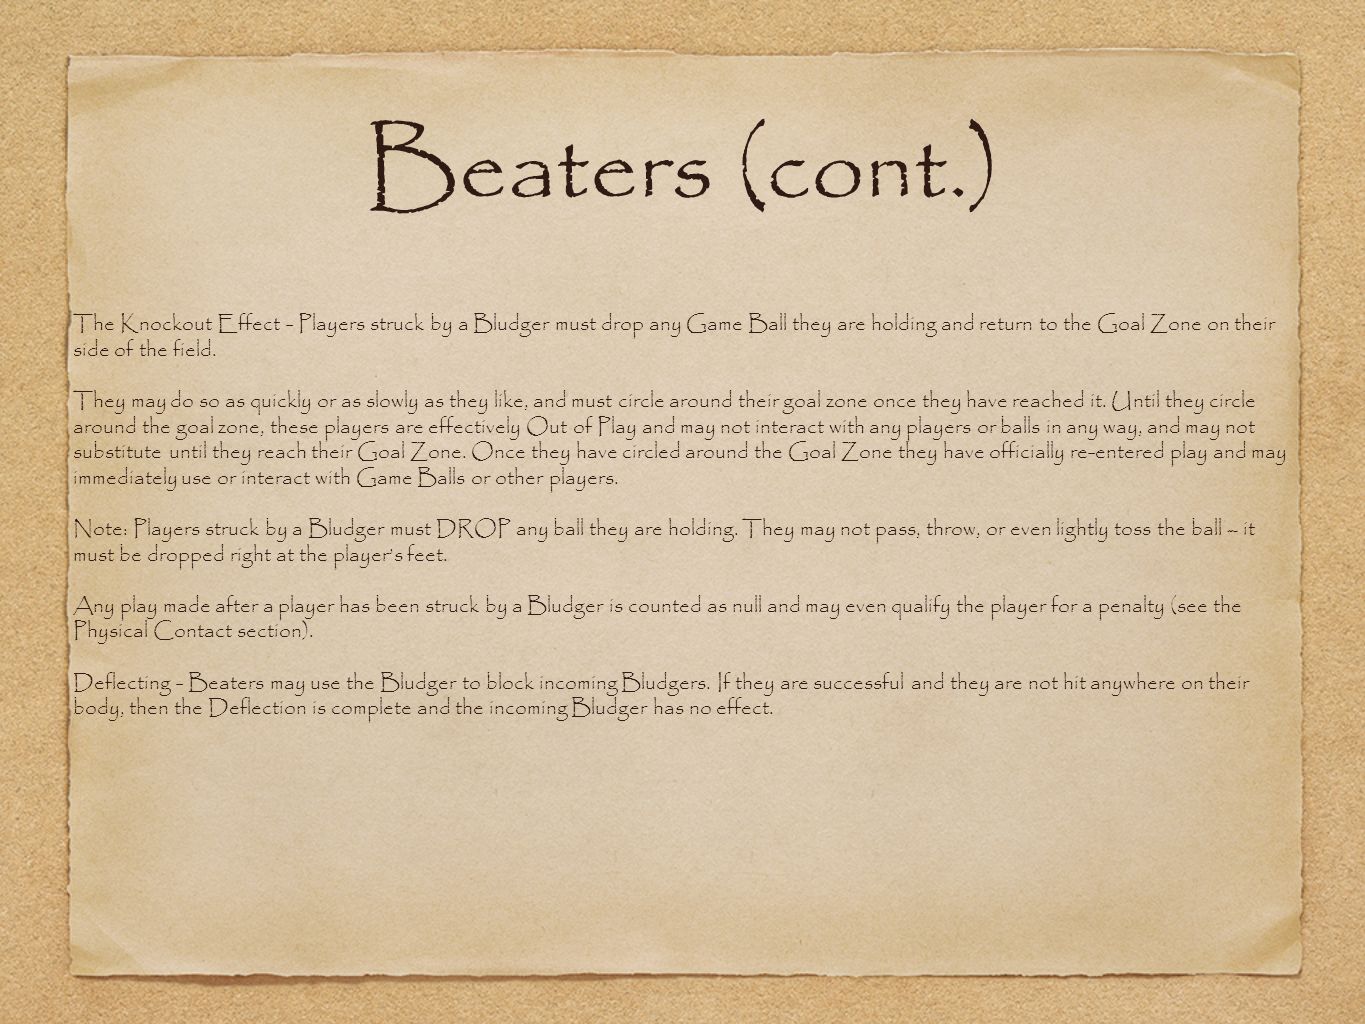 Beaters (cont.)
The Knockout Effect - Players struck by a Bludger must drop any Game Ball they are holding and return to the Goal Zone on their
side of the field.
They may do so as quickly or as slowly as they like, and must circle around their goal zone once they have reached it. Until they circle
around the goal zone, these players are effectively Out of Play and may not interact with any players or balls in any way, and may not
substitute until they reach their Goal Zone. Once they have circled around the Goal Zone they have officially re-entered play and may
immediately use or interact with Game Balls or other players.
Note: Players struck by a Bludger must DROP any ball they are holding. They may not pass, throw, or even lightly toss the ball – it
must be dropped right at the player's feet.
Any play made after a player has been struck by a Bludger is counted as null and may even qualify the player for a penalty (see the
Physical Contact section).
Deflecting - Beaters may use the Bludger to block incoming Bludgers. If they are successful and they are not hit anywhere on their
body, then the Deflection is complete and the incoming Bludger has no effect.